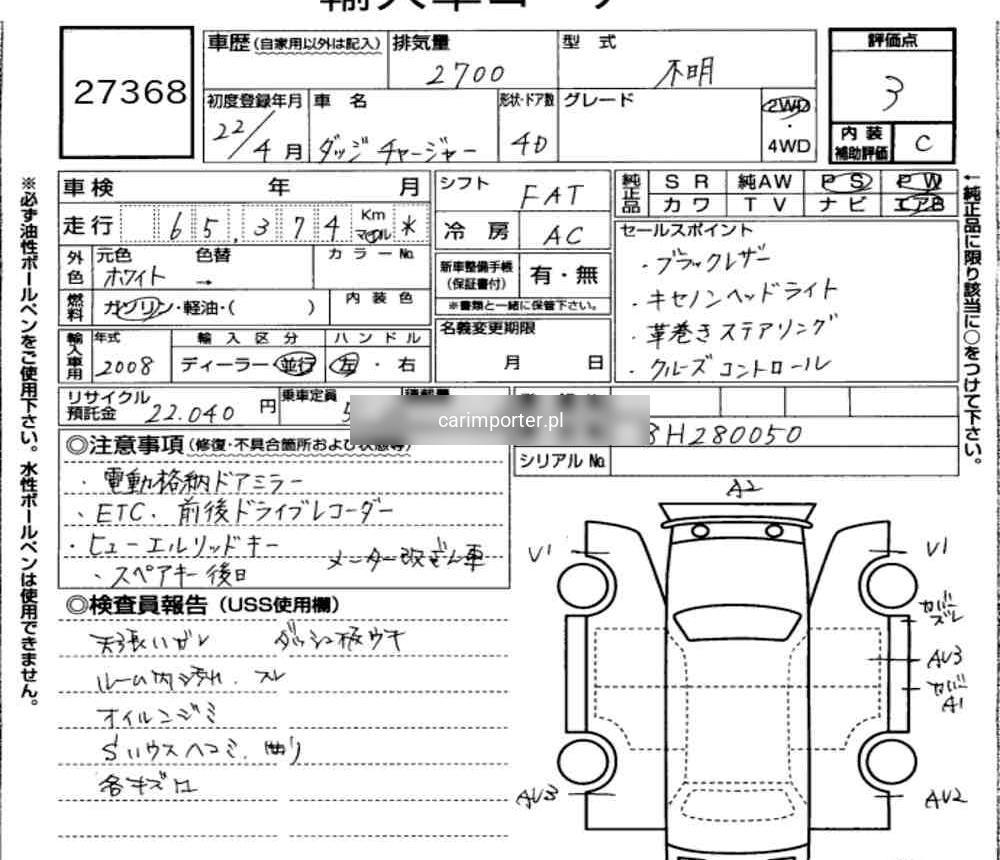 27368
車歴(自家用以外は記入) 排気量 型式 評価点
2700 不明 3
初度登録年月 車名 形状・ドア数 グレード 2WD
22/4月 ダッジ チャージャー 4D ・ 4WD
内装補助評価 C
車検 年 月 シフト FAT 純正品 SR 純AW PS PW
走行 65,374 Km マイル * 冷房 AC カワ TV ナビ エアB
外色 元色 色替 カラーNo.
ホワイト →
新車整備手帳(保証書付) 有・無
※書類と一緒に保管下さい。
燃料 ガソリン・軽油・( ) 内装色
輸入車用 年式 輸入区分 ハンドル
2008 ディーラー・並行 左・右
名義変更期限
月 日
セールスポイント
・ブラックレザー
・キセノンヘッドライト
・革巻きステアリング
・クルーズコントロール
リサイクル預託金 22.040 円 乗車定員 5
carimporter.pl
8H280050
シリアルNo.
◎注意事項(修復・不具合箇所および状態等)
・電動格納ドアミラー
・ETC. 前後ドライブレコーダー
・ヒューエルリッドキー メーター改ざん車
・スペアキー後日
◎検査員報告(USS使用欄)
天張ハガレ ダッシュ板ウキ
ルーム内汚れ.スレ
オイルニジミ
各キズ口
A2
V1 V1
カバーズレ
AU3
カバーA1
AU3 AU2
※必ず油性ボールペンをご使用下さい。水性ボールペンは使用できません。
←純正品に限り該当に○をつけて下さい。